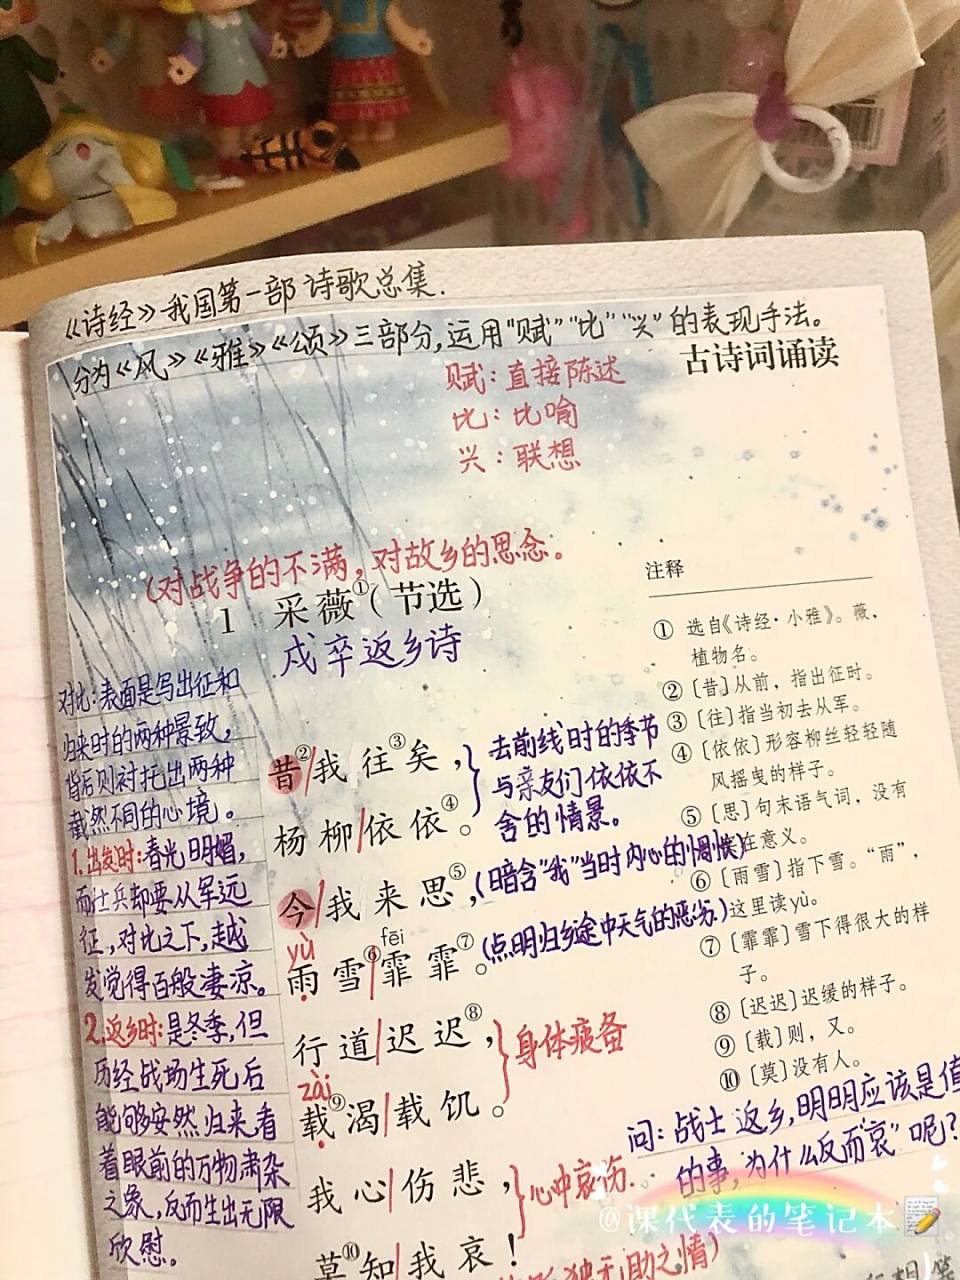 《诗经》我国第一部诗歌总集.
分为《风》《雅》《颂》三部分,运用“赋”“比”“兴”的表现手法。
古诗词诵读
赋:直接陈述
比:比喻
兴:联想
(对战争的不满,对故乡的思念。
1 采薇①(节选)
戍卒返乡诗
对比:表面是写出征和
归来时的两种景致,
背后则衬托出两种
截然不同的心境。
1.出发时:春光明媚,
而士兵却要从军远
征,对比之下,越
发觉得百般凄凉。
2.返乡时:是冬季,但
历经战场生死后
能够安然归来看
着眼前的万物肃杂
之象,反而生出无限
欣慰。
昔②/我往③矣,
杨柳/依依④。
去前线时的季节
与亲友们依依不
舍的情景。
今/我来思⑤,
(暗含“我”当时内心的惆怅)
yù
fēi
雨雪⑥/霏霏⑦。
(点明归乡途中天气的恶劣)
行道/迟迟⑧,
zài
载⑨渴/载饥。
身体疲惫
我心/伤悲,
心中哀伤.
莫⑩知/我哀!
独无助之情)
注释
① 选自《诗经·小雅》。薇,
植物名。
②〔昔〕从前,指出征时。
③〔往〕指当初去从军。
④〔依依〕形容柳丝轻轻随
风摇曳的样子。
⑤〔思〕句末语气词,没有
在意义。
⑥〔雨雪〕指下雪。“雨”,
这里读yù。
⑦〔霏霏〕雪下得很大的样
子。
⑧〔迟迟〕迟缓的样子。
⑨〔载〕则,又。
⑩〔莫〕没有人。
问:战士返乡,明明应该是值
的事,为什么反而“哀”呢?
@课代表的笔记本